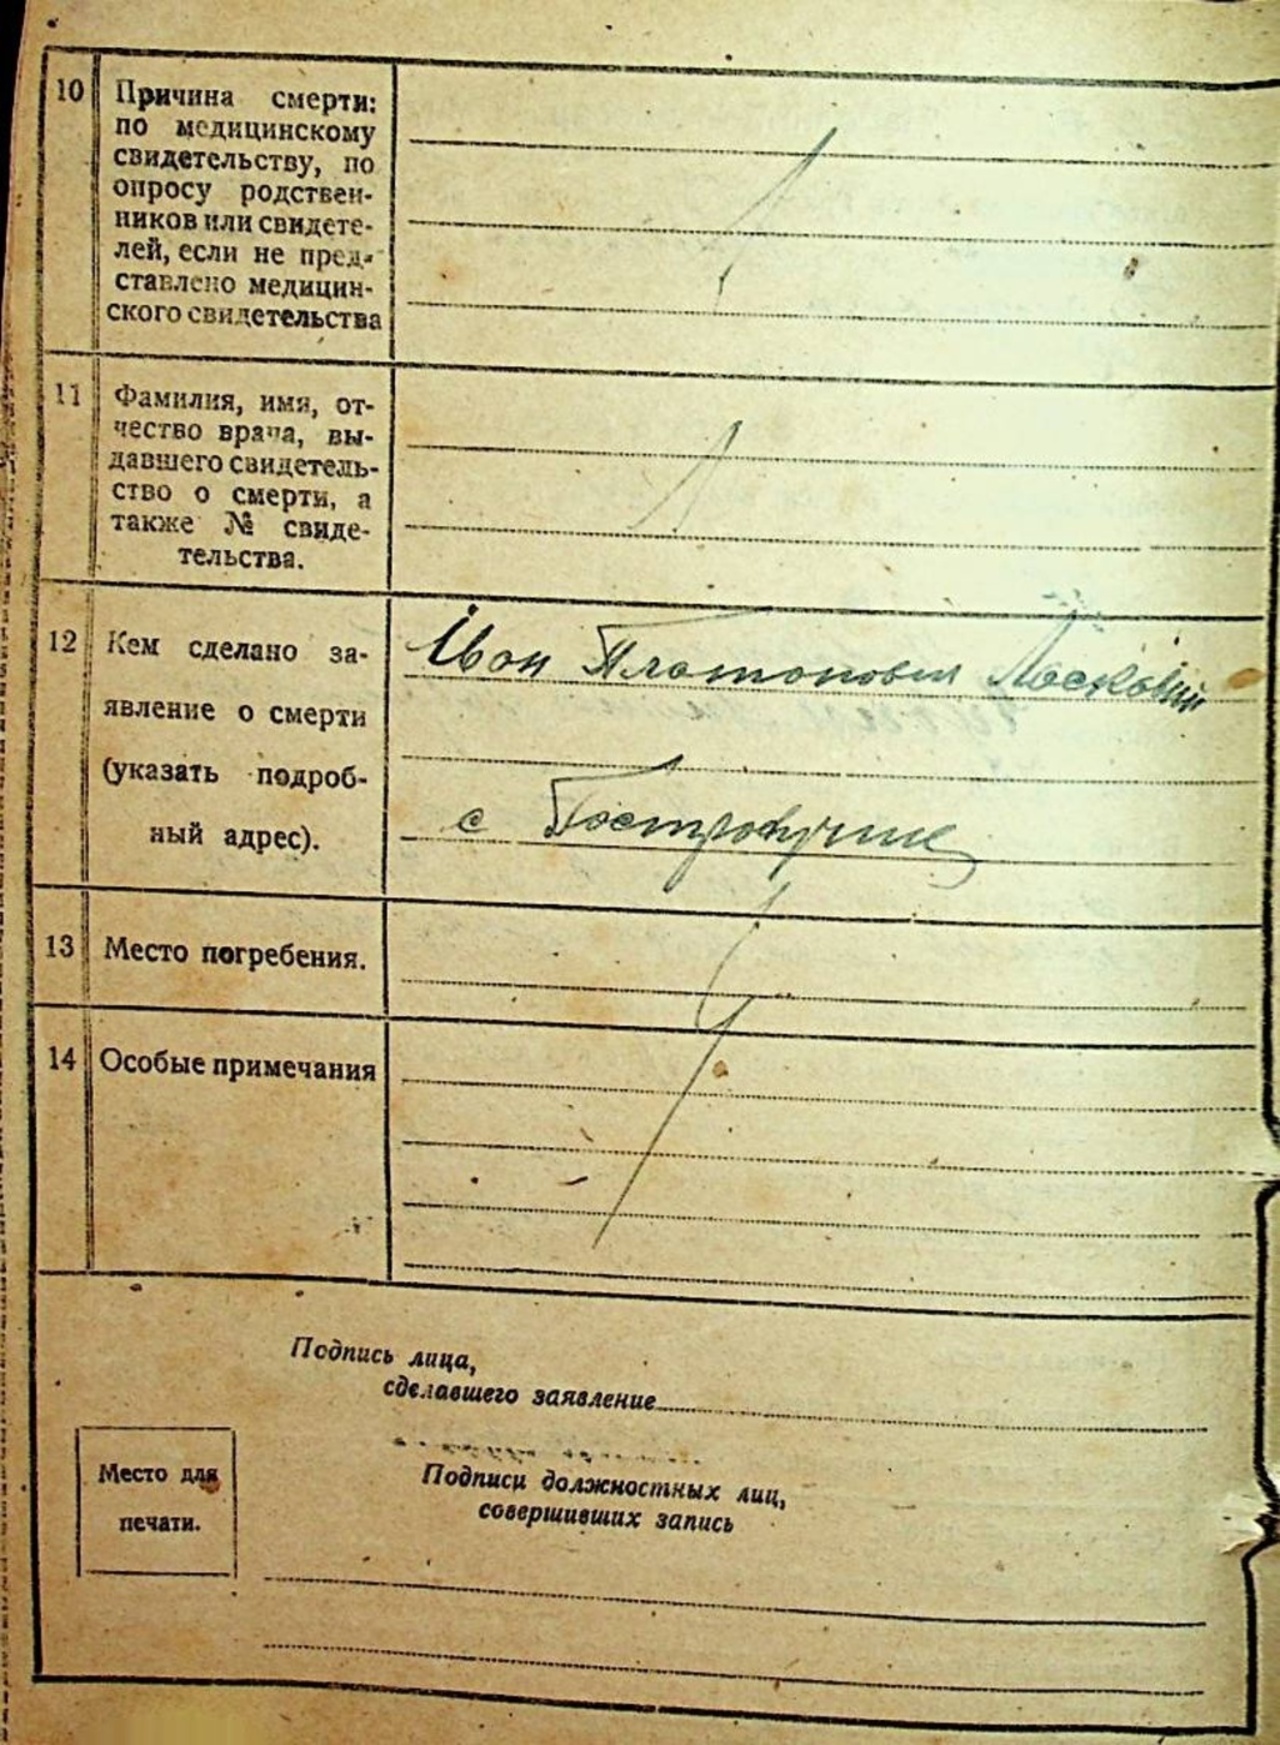 10 Причина смерти:
по медицинскому
свидетельству, по
опросу родствен-
ников или свидете-
лей, если не пред-
ставлено медицин-
ского свидетельства
11 Фамилия, имя, от-
чество врача, вы-
давшего свидетель-
ство о смерти, а
также № свиде-
тельства.
12 Кем сделано за-
явление о смерти
(указать подроб-
ный адрес).
Іван Платонович
с
13 Место погребения.
14 Особые примечания
Подпись лица,
сделавшего заявление
Место для
печати.
Подписи должностных лиц,
совершивших запись